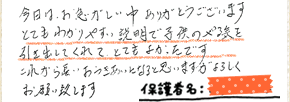 今日は、お忙がしい中ありがとうございます
とてもわかりやすい説明で子供のやる気を
引き出してくれて、とてもよかったです
これから長いおつきあいになると思いますがよろしく
お願い致します
保護者名: